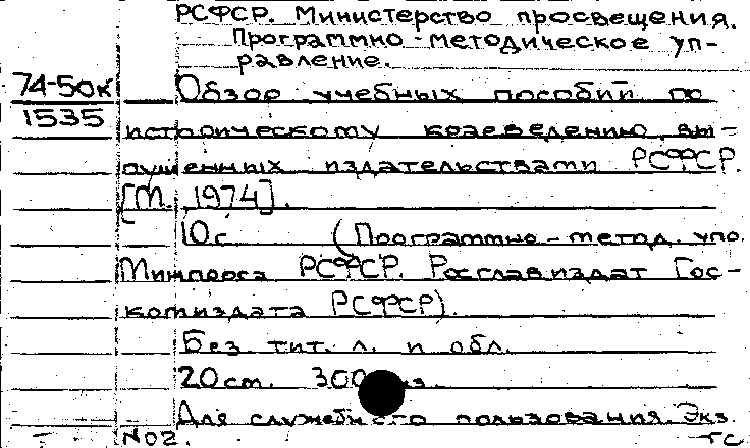 РСФСР. Министерство просвещения.
Программно-методическое уп-
равление.
74-50к
1535
Обзор учебных пособий по
историческому краеведению, вы-
пущенных издательствами РСФСР.
[М. 1974].
10с. (Программно-метод. упр.
Минпроса РСФСР. Росглавиздат Гос-
комиздата РСФСР).
Без тит. л. и обл.
20см. 300
Для служебного пользования. Экз.
№02.